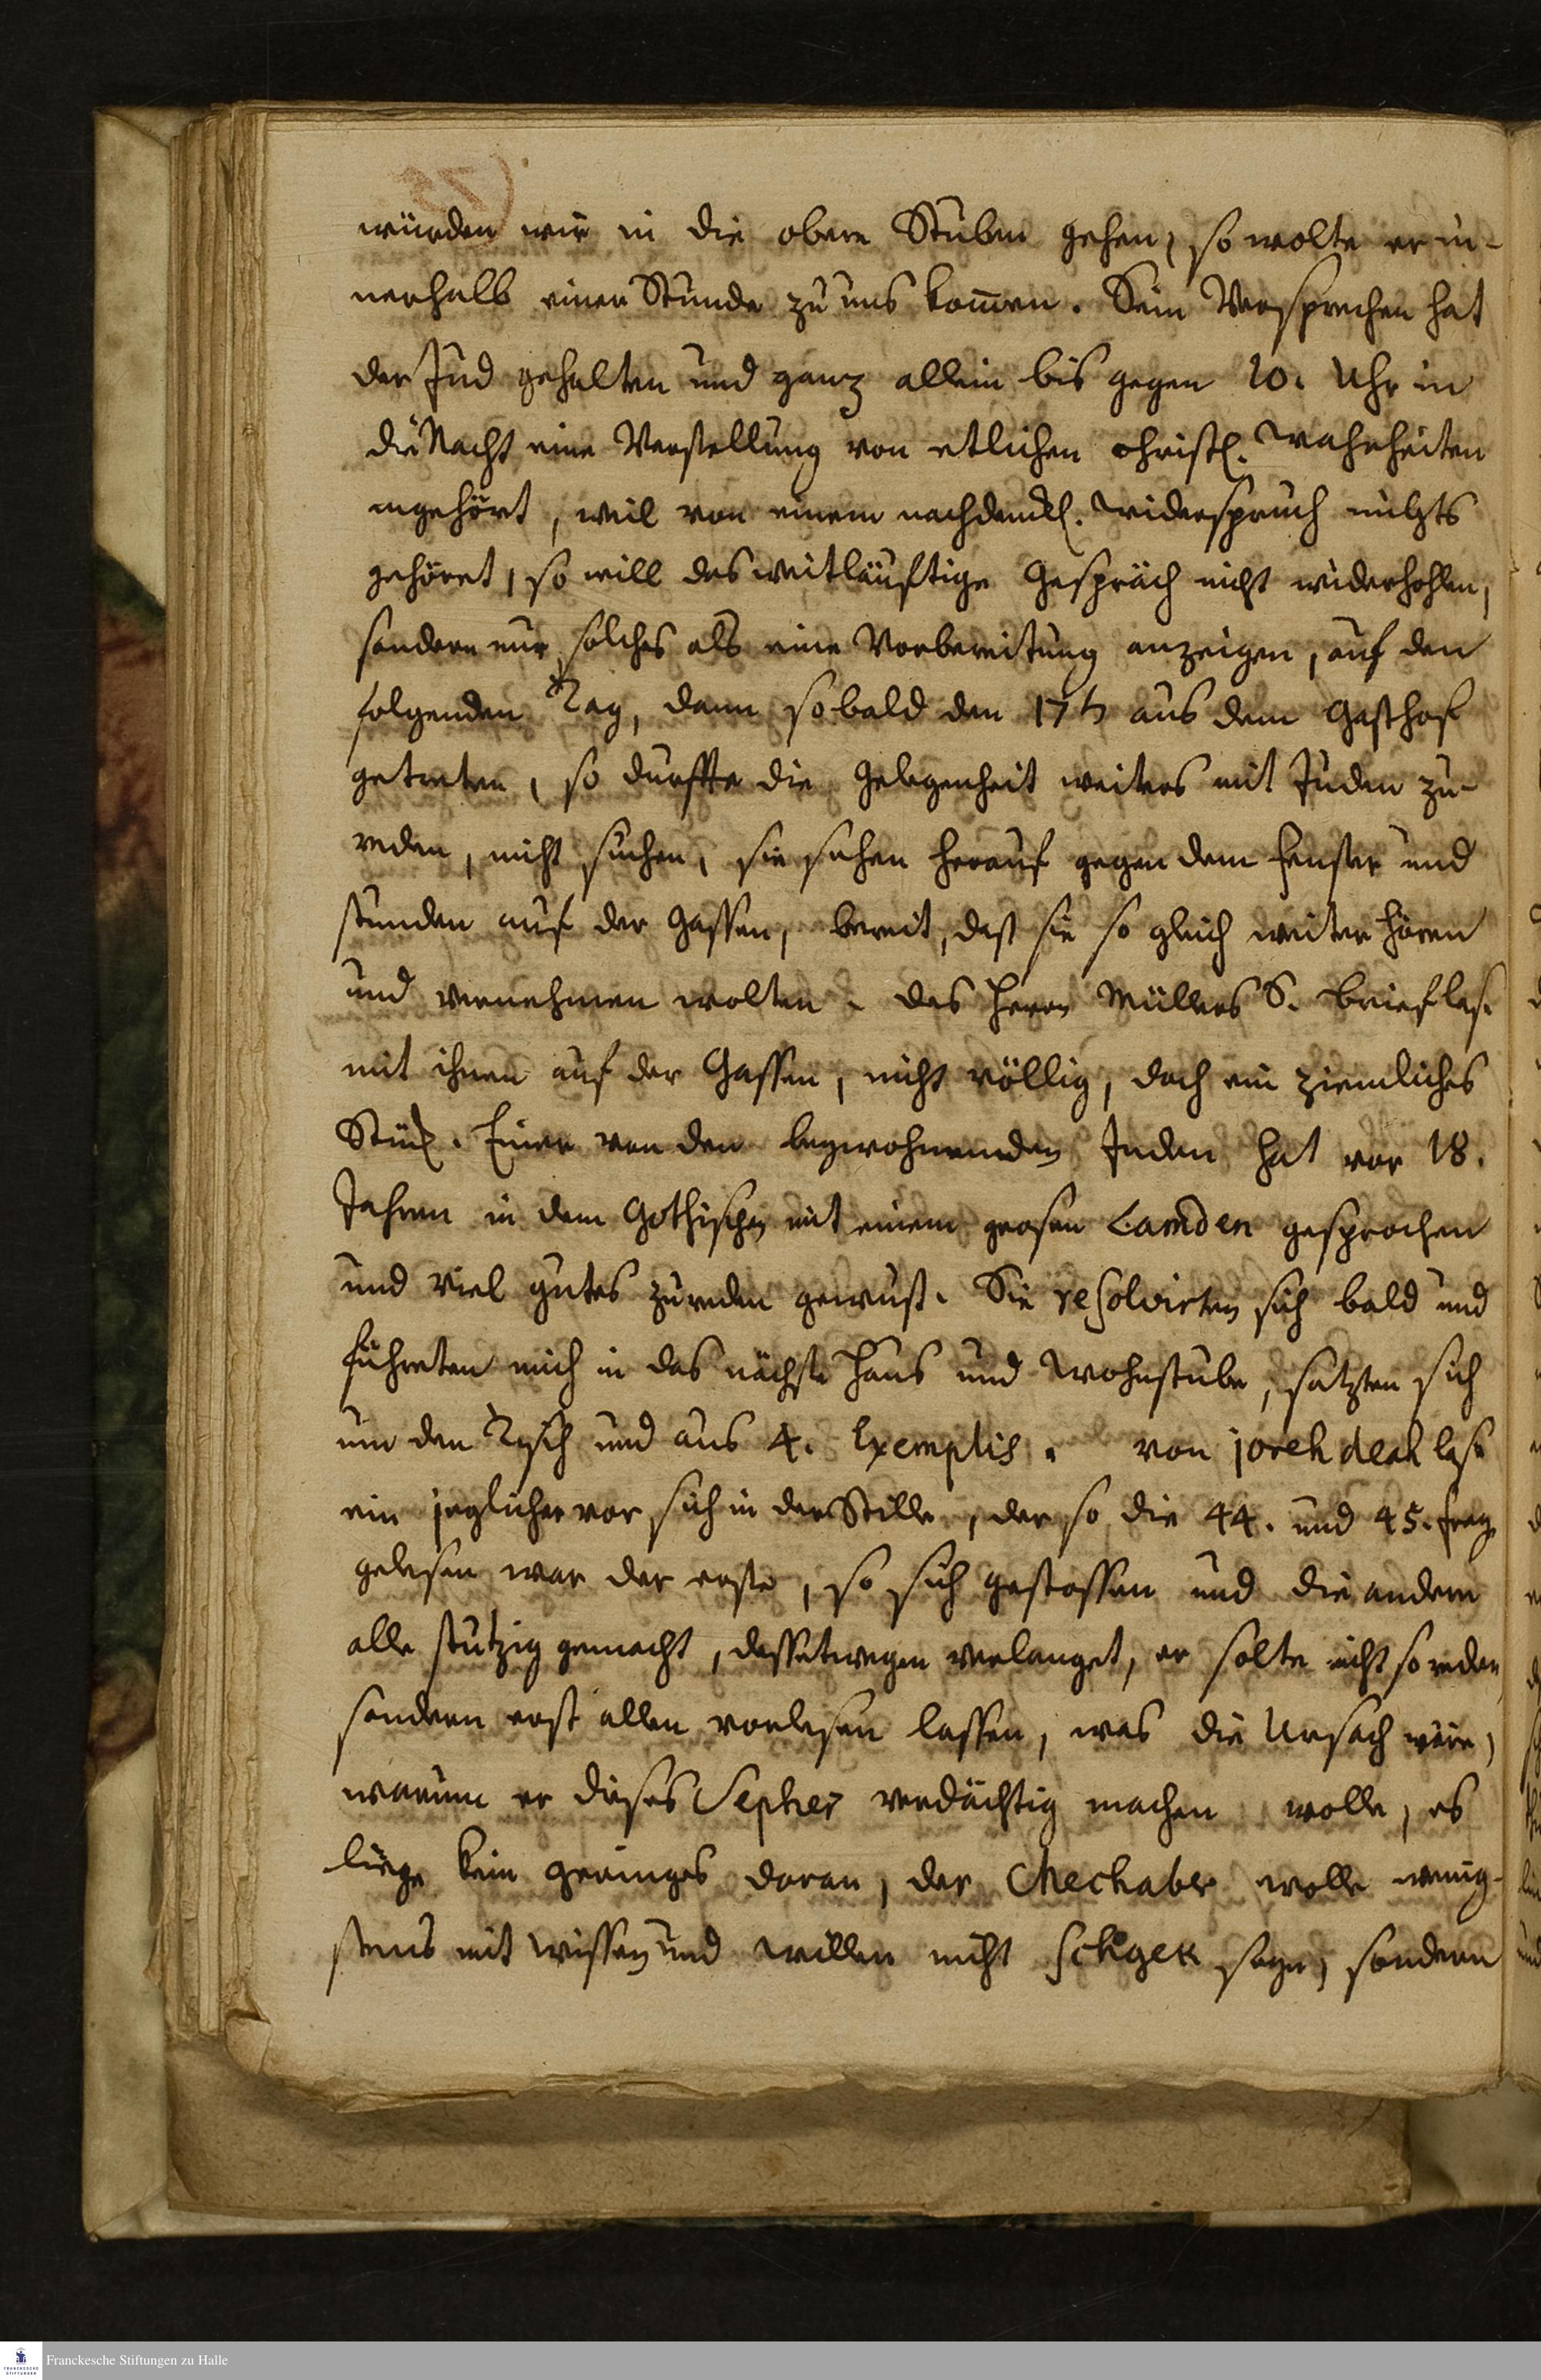 würden wir in die obere Stuben gehen, so wolte er in-
nerhalb einer Stunde zu uns kom̄en. Sein Versprechen hat
der Jud gehalten und ganz allein bis gegen 10. Uhr in
die Nacht eine Vorstellung von etlichen christl. Wahrheiten
angehört, weil von einem nachdenckl. Widerspruch nichts
gehöret, so will das weitläuftige Gespräch nicht widerhohlen,
sondern nur solches als eine Vorbereitung anzeigen, auf den
folgenden Tag, dann so bald den 17t aus dem Gasthof
getreten, so durffte die Gelegenheit weiters mit Juden zu-
reden, nicht suchen, sie sahen herauf gegen dem Fenster und
stunden auf der Gassen, bereit, daß sie so gleich weiter hören
und vernehmen wolten. des Herrn Müllers S. Brief las.
mit ihnen auf der Gassen, nicht völlig, doch ein ziemliches
Stück. Einer von den beywohnenden Juden hat vor 18.
Jahren in dem Gothischen mit einem grosen Lamden gesprochen
und viel gutes zureden gewust. Sie resolvirten sich bald und
führeten mich in das nächste Haus und Wohnstube, satzten sich
um den Tisch und aus 4. Exemplis. von joreh deah lase
ein jeglicher vor sich in der Stille, der so die 44. und 45. Frag
gelesen war der erste, so sich gestossen und die andern
alle stutzig gemacht, dessetwegen verlanget, er solte nicht so reden
sondern erst allen vorlesen lassen, was die Ursach wäre,
warum er dieses Sepher verdächtig machen wolle, es
liege kein geringes daran, der Mechaber wolle wenig-
stens mit wissen und willen nicht scheger sagen, sondern
Franckesche Stiftungen zu Halle